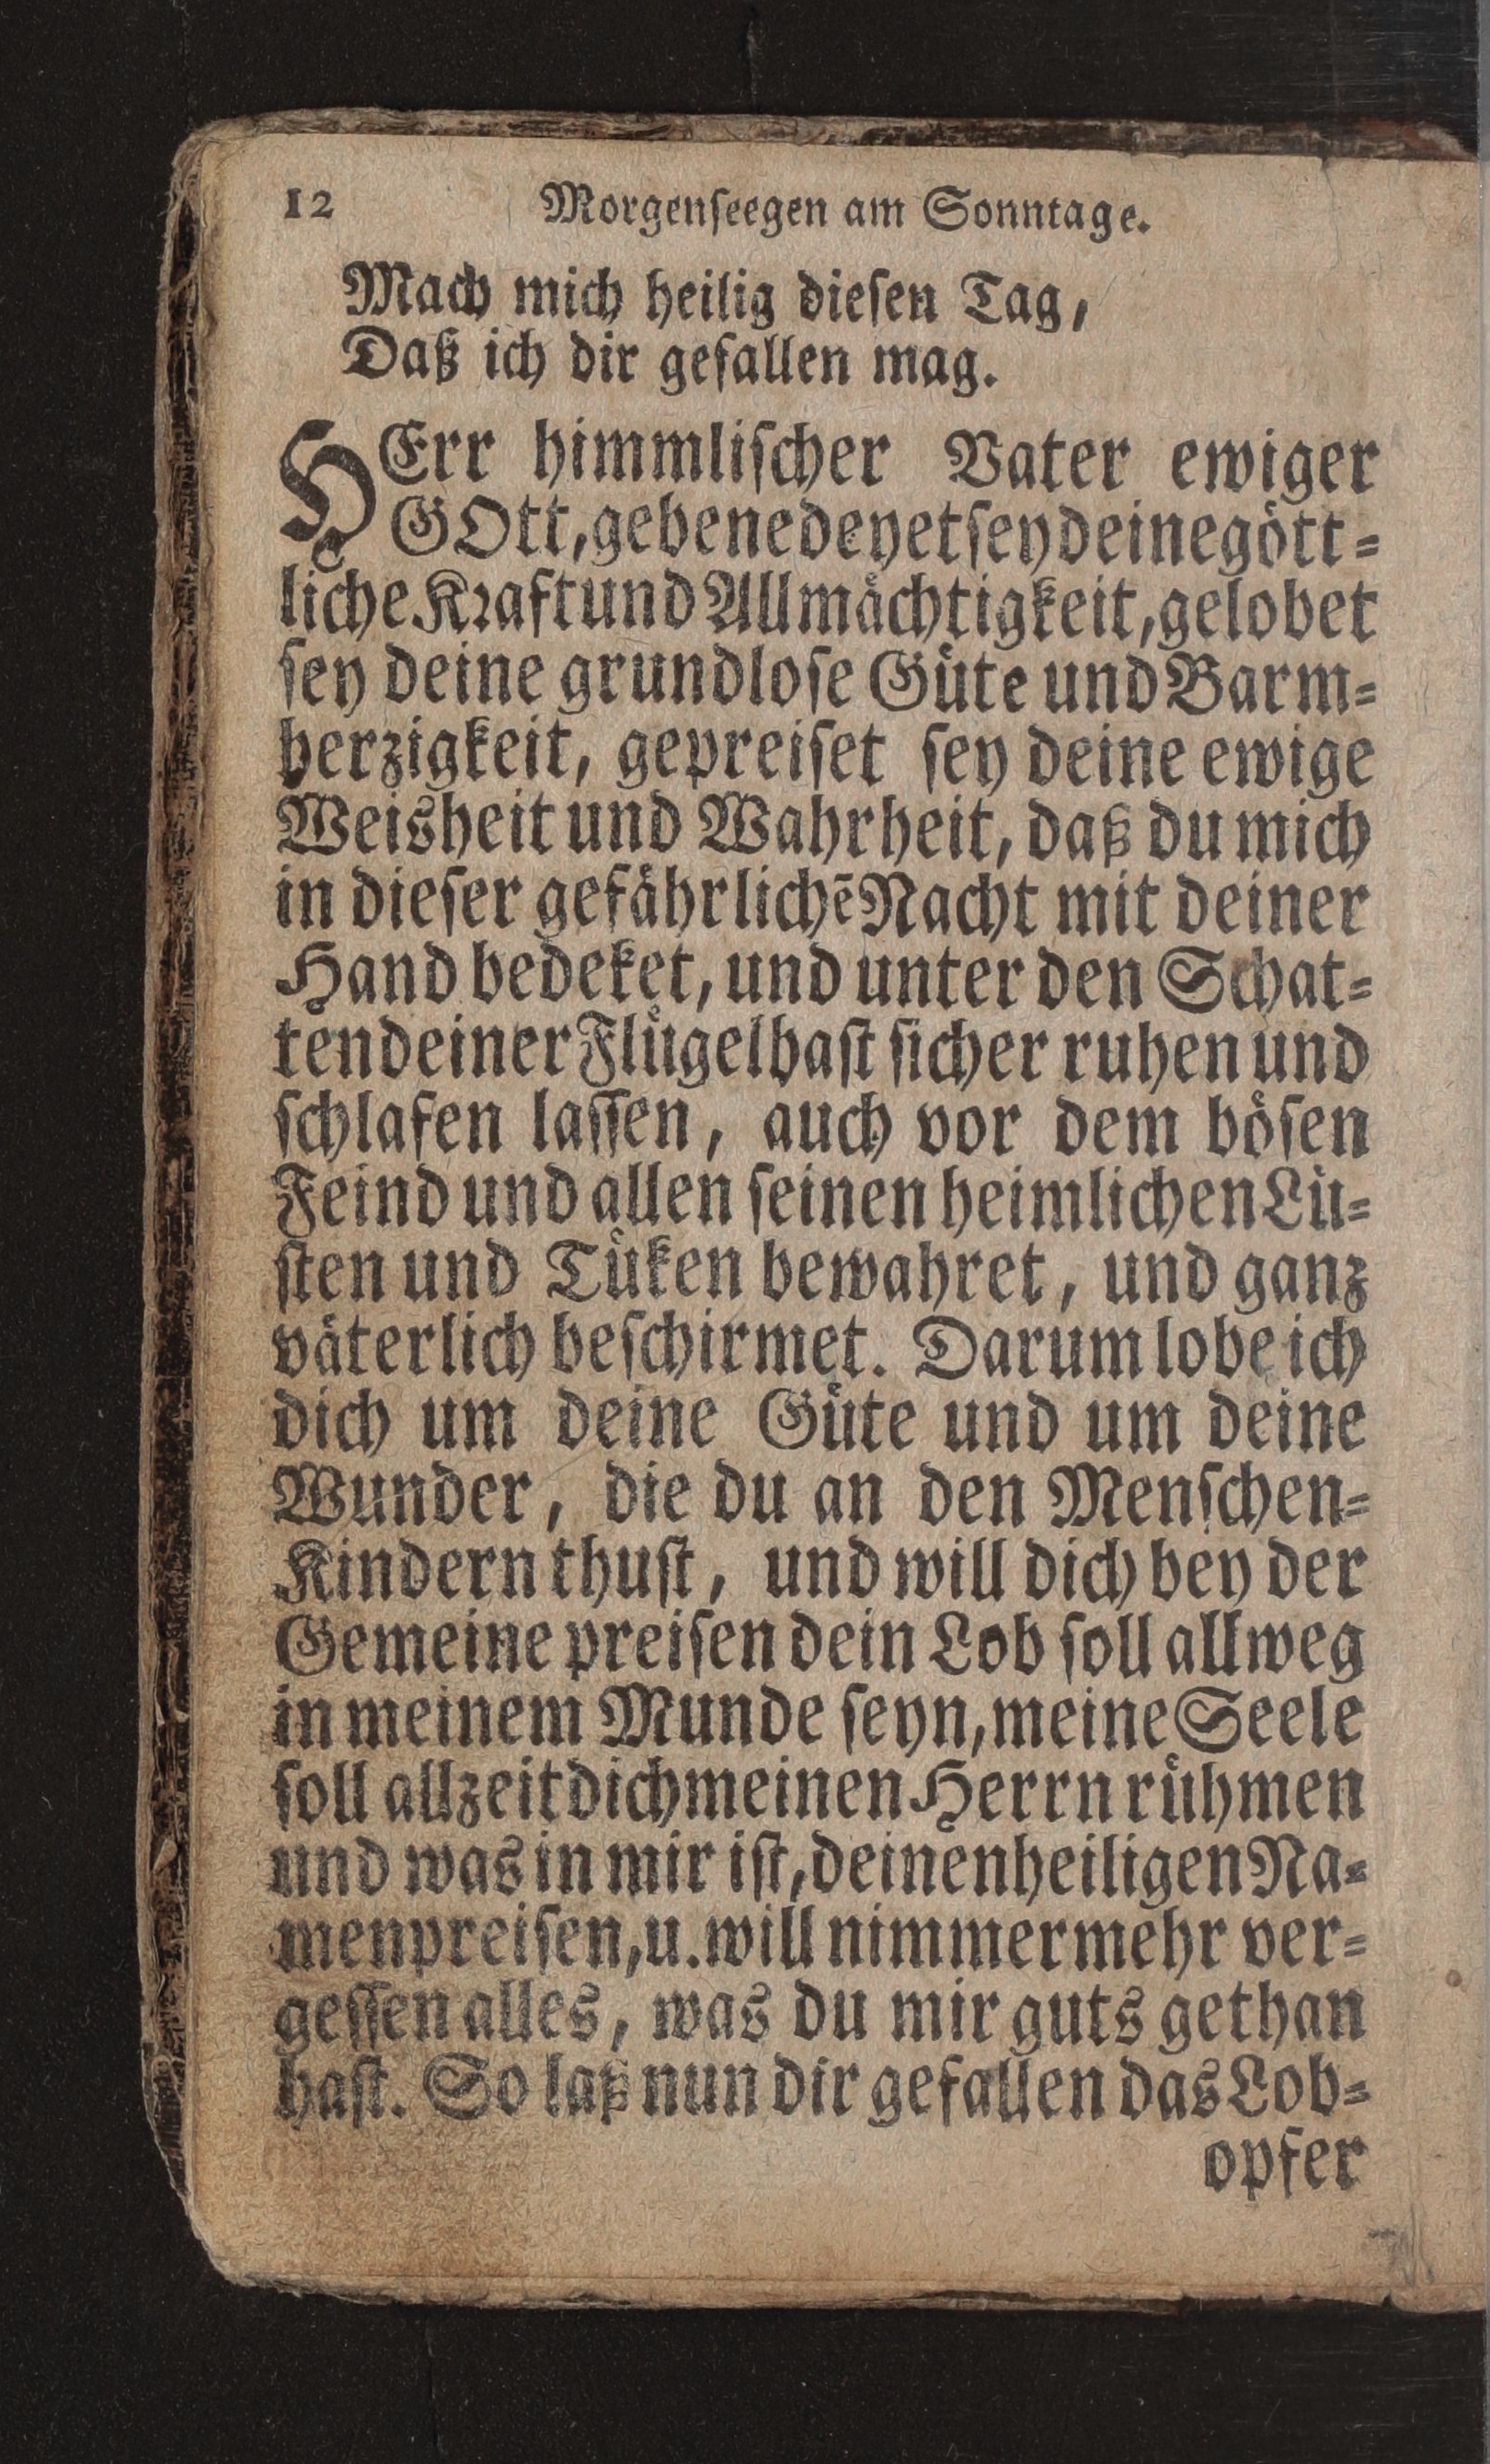 12 Morgenseegen am Sonntage.
Mach mich heilig diesen Tag,
Daß ich dir gefallen mag.
HErr himmlischer Vater ewiger
GOtt, gebenedeyet sey deine gött-
liche Kraft und Allmächtigkeit, gelobet
sey deine grundlose Güte und Barm-
herzigkeit, gepreiset sey deine ewige
Weisheit und Wahrheit, daß du mich
in dieser gefährlichē Nacht mit deiner
Hand bedeket, und unter den Schat-
ten deiner Flügel hast sicher ruhen und
schlafen lassen, auch vor dem bösen
Feind und allen seinen heimlichen Lü-
sten und Tüken bewahret, und ganz
väterlich beschirmet. Darum lobe ich
dich um deine Güte und um deine
Wunder, die du an den Menschen-
Kindern thust, und will dich bey der
Gemeine preisen dein Lob soll allweg
in meinem Munde seyn, meine Seele
soll allzeit dich meinen Herrn rühmen
und was in mir ist, deinen heiligen Na-
men preisen, u. will nimmermehr ver-
gessen alles, was du mir guts gethan
hast. So laß nun dir gefallen das Lob-
opfer